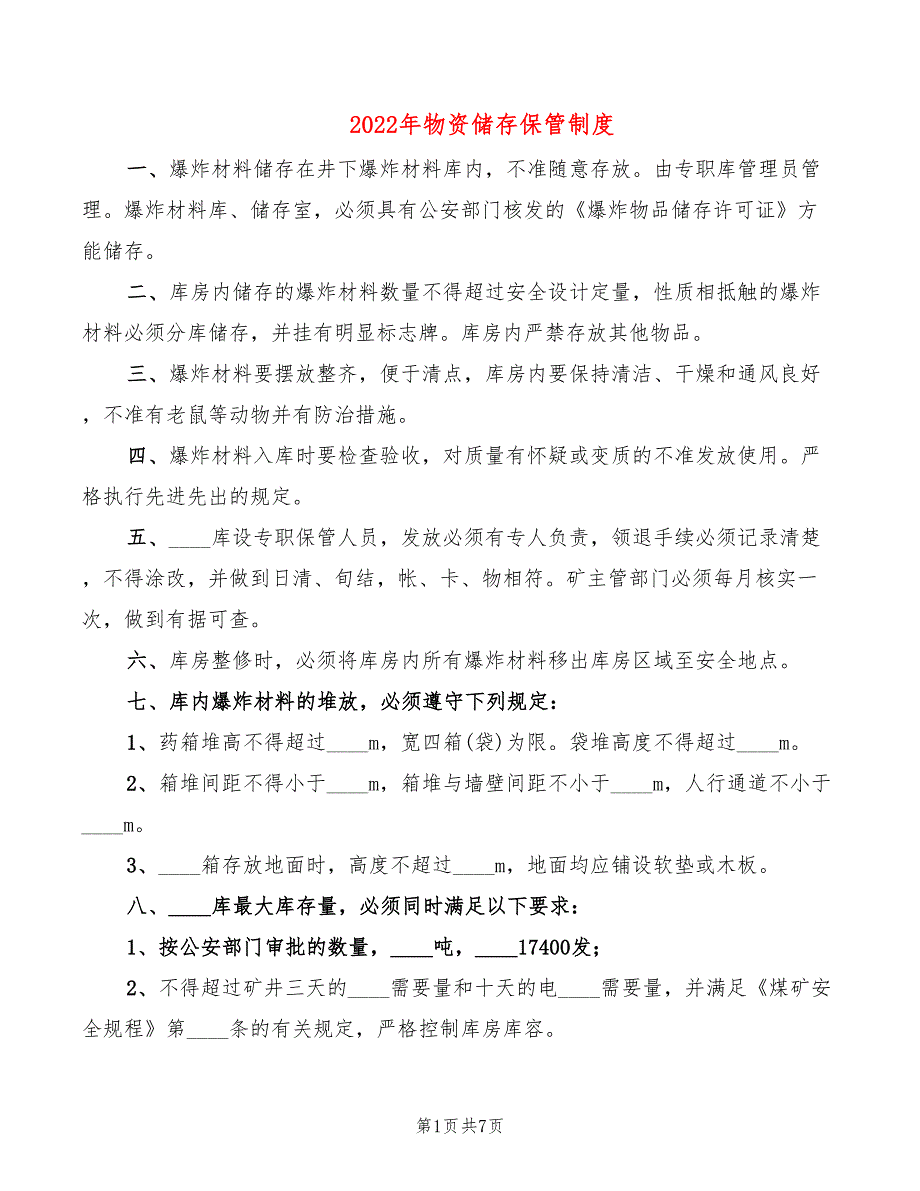 2022年物资储存保管制度
一、爆炸材料储存在井下爆炸材料库内，不准随意存放。由专职库管理员管
理。爆炸材料库、储存室，必须具有公安部门核发的《爆炸物品储存许可证》方
能储存。
二、库房内储存的爆炸材料数量不得超过安全设计定量，性质相抵触的爆炸
材料必须分库储存，并挂有明显标志牌。库房内严禁存放其他物品。
三、爆炸材料要摆放整齐，便于清点，库房内要保持清洁、干燥和通风良好
，不准有老鼠等动物并有防治措施。
四、爆炸材料入库时要检查验收，对质量有怀疑或变质的不准发放使用。严
格执行先进先出的规定。
五、____库设专职保管人员，发放必须有专人负责，领退手续必须记录清楚
，不得涂改，并做到日清、旬结，帐、卡、物相符。矿主管部门必须每月核实一
次，做到有据可查。
六、库房整修时，必须将库房内所有爆炸材料移出库房区域至安全地点。
七、库内爆炸材料的堆放，必须遵守下列规定：
1、药箱堆高不得超过____m，宽四箱(袋)为限。袋堆高度不得超过____m。
2、箱堆间距不得小于____m，箱堆与墙壁间距不小于____m，人行通道不小于
____m。
3、____箱存放地面时，高度不超过____m，地面均应铺设软垫或木板。
八、____库最大库存量，必须同时满足以下要求：
1、按公安部门审批的数量，____吨，____17400发；
2、不得超过矿井三天的____需要量和十天的电____需要量，并满足《煤矿安
全规程》第____条的有关规定，严格控制库房库容。
第1页共7页